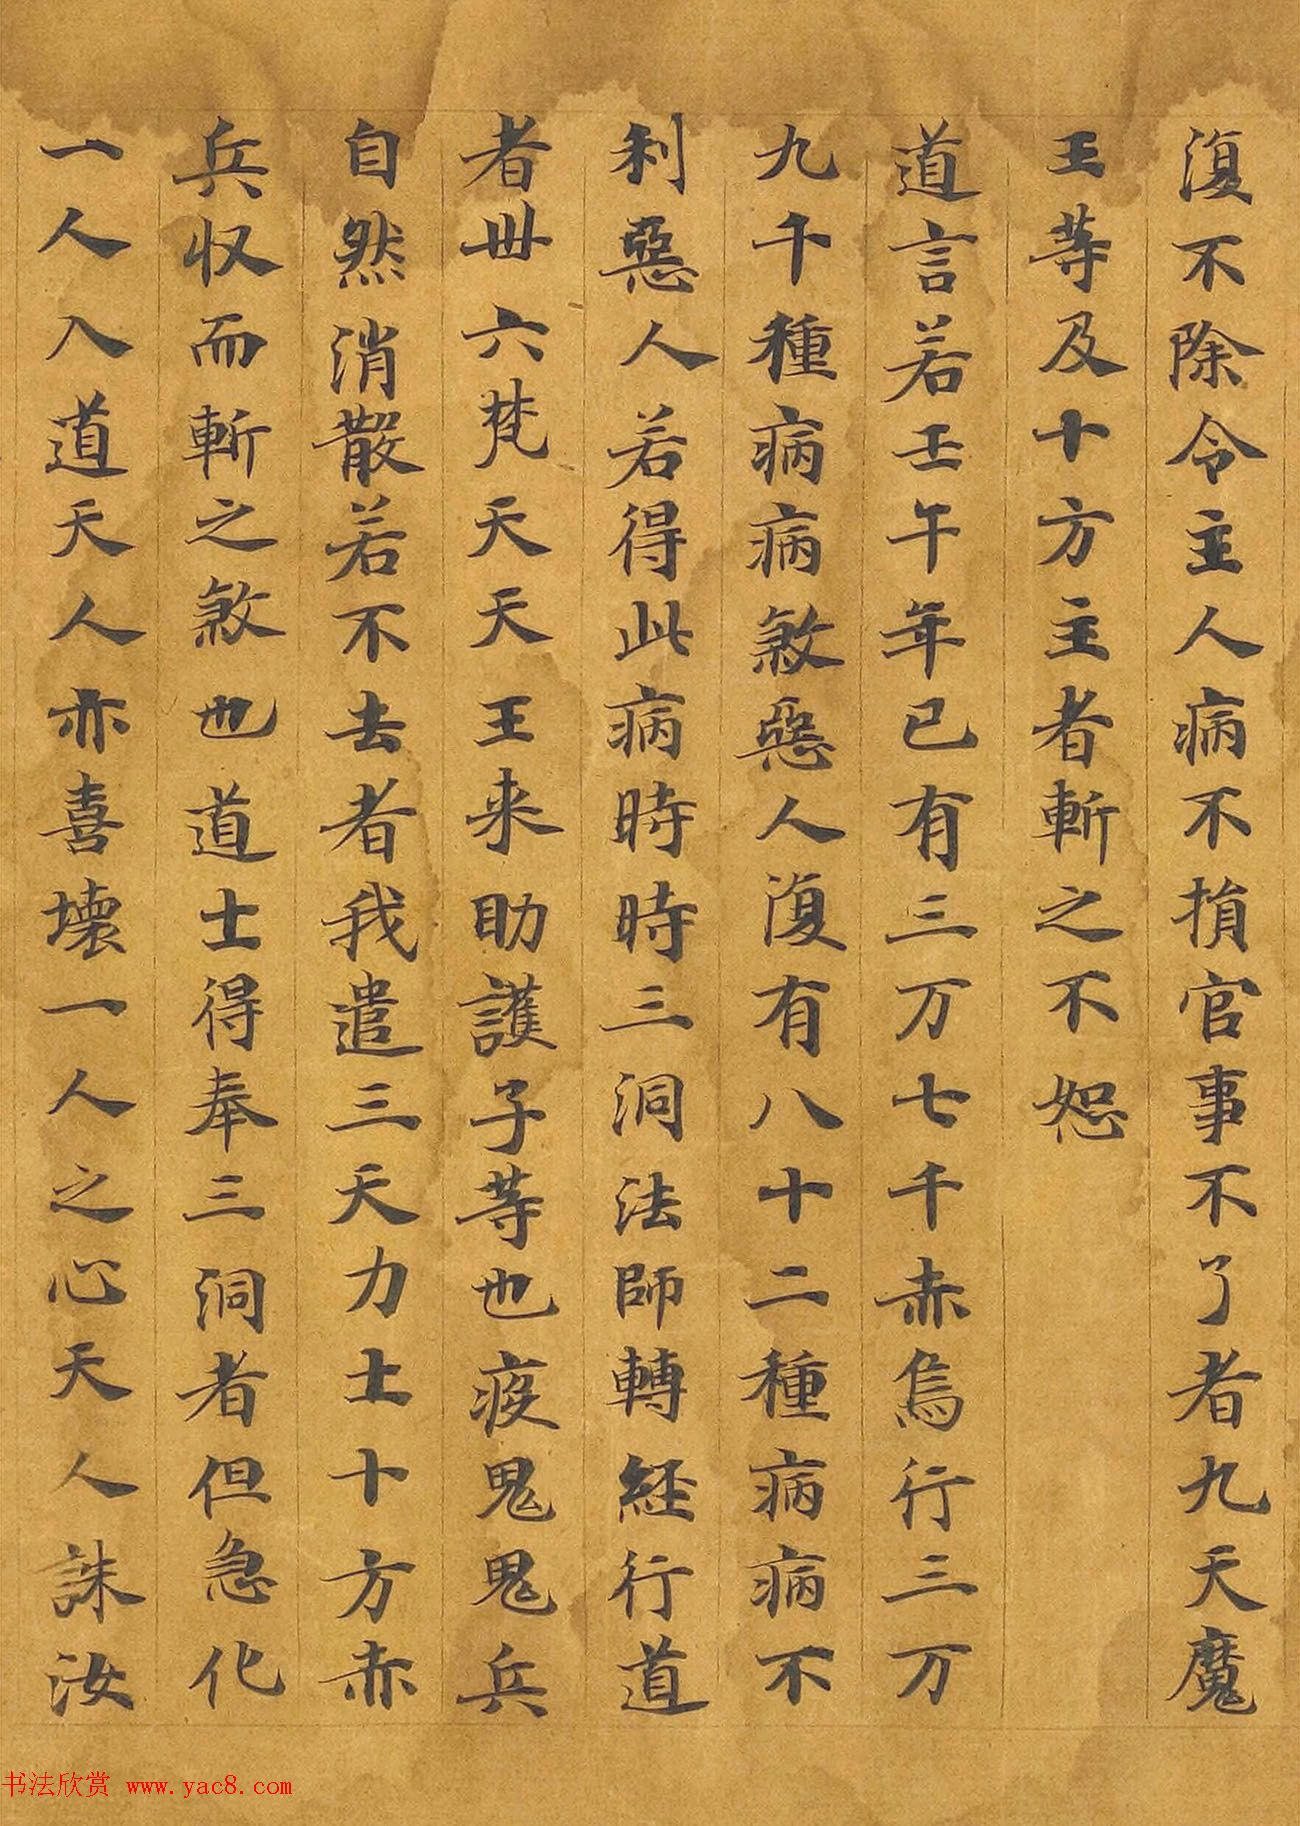 復不除令主人病不損官事不了者九天魔
王等及十方主者斬之不恕
道言若壬午年已有三万七千赤烏行三万
九千種病病煞惡人復有八十二種病病不
利惡人若得此病時時三洞法師轉経行道
者卌六梵天天王来助護子等也疫鬼鬼兵
自然消散若不去者我遣三天力士十方赤
兵收而斬之煞也道士得奉三洞者但急化
一人入道天人亦喜壞一人之心天人誅汝
书法欣赏 www.yac8.com